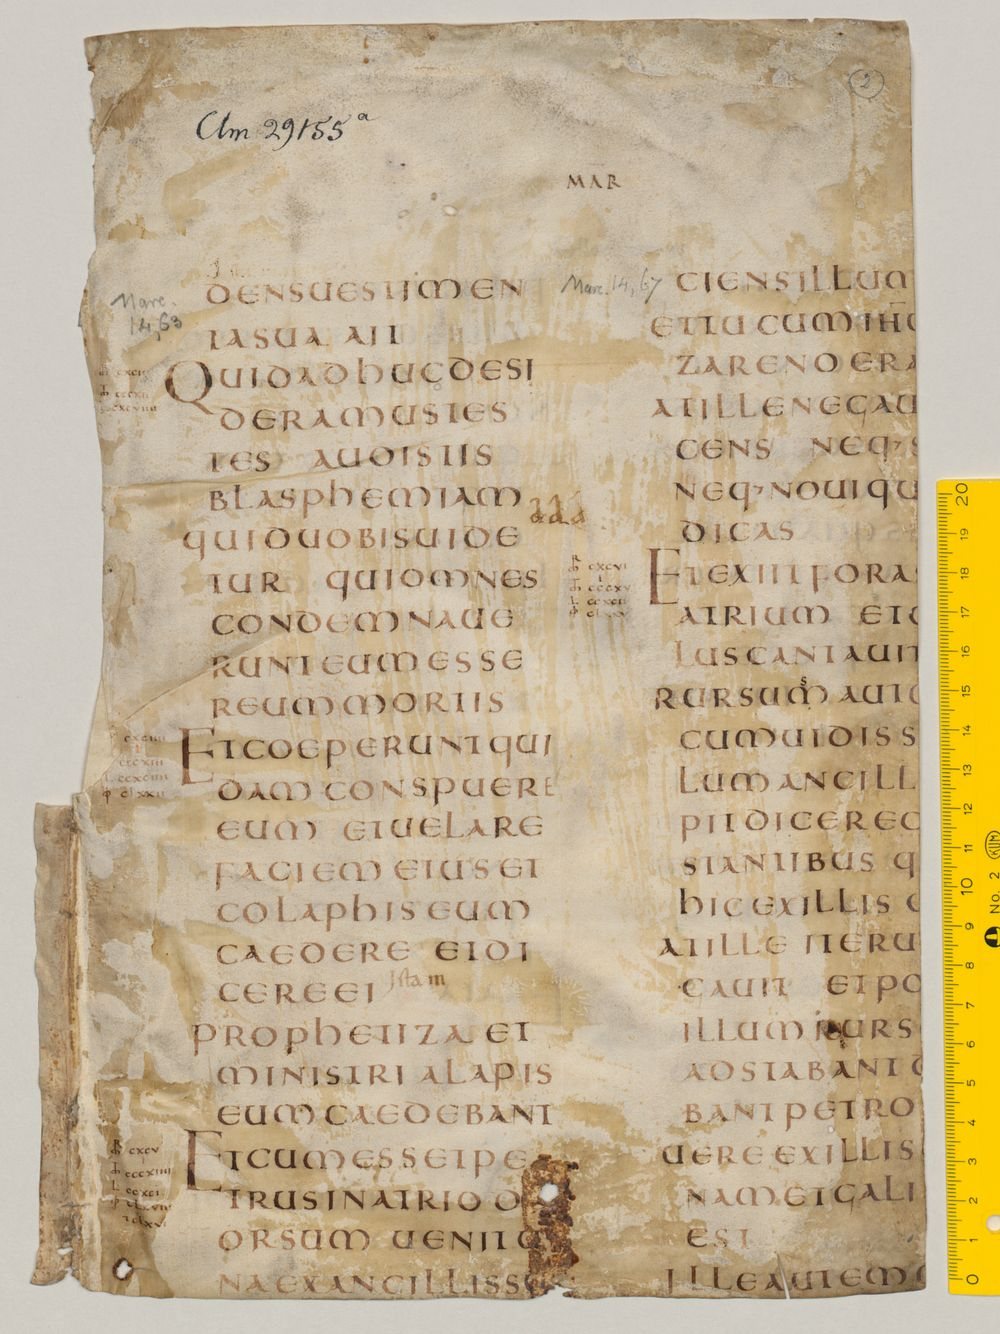 2
Clm 29155 a
MAR
Marc.
14,63
DENSUESTIMEN
TASUA AIT
QUIDADHUCDESI
DERAMUSTES
TES AUDISTIS
BLASPHEMIAM
QUIDUOBISUIDE
TUR QUIOMNES
CONDEMNAUE
RUNTEUMESSE
REUMMORTIS
ETCOEPERUNTQUI
DAMCONSPUERE
EUM ETUELARE
FACIEMEIUSET
COLAPHISEUM
CAEDERE ETDI
CEREEI Istam
PROPHETIZA ET
MINISTRI ALAPIS
EUMCAEDEBANT
ETCUMESSETPE
TRUSINATRIO
ORSUM UENIT
NAEXANCILLISS
Marc. 14,67
CIENSILLUM
ETTUCUMIHU
ZARENOERA
ATILLENEGAU
CENS NEQ·S
NEQ·NOUIQU
DICAS
ETEXIITFORA
ATRIUM ETG
LUSCANTAUIT
RURSUSMAUTE
CUMUIDISS
LUMANCILL
PITDICEREC
STANTIBUS Q
HICEXILLIS E
ATILLE ITERU
CAUIT ETPO
ILLUMRURS
ADSTABANT D
BANTPETRO
UEREEXILLIS
NAMETGALI
EST
ILLEAUTEM
20 19 18 17 16 15 14 13 12 11 10 9 8 7 6 5 4 3 2 1 0
No. 2